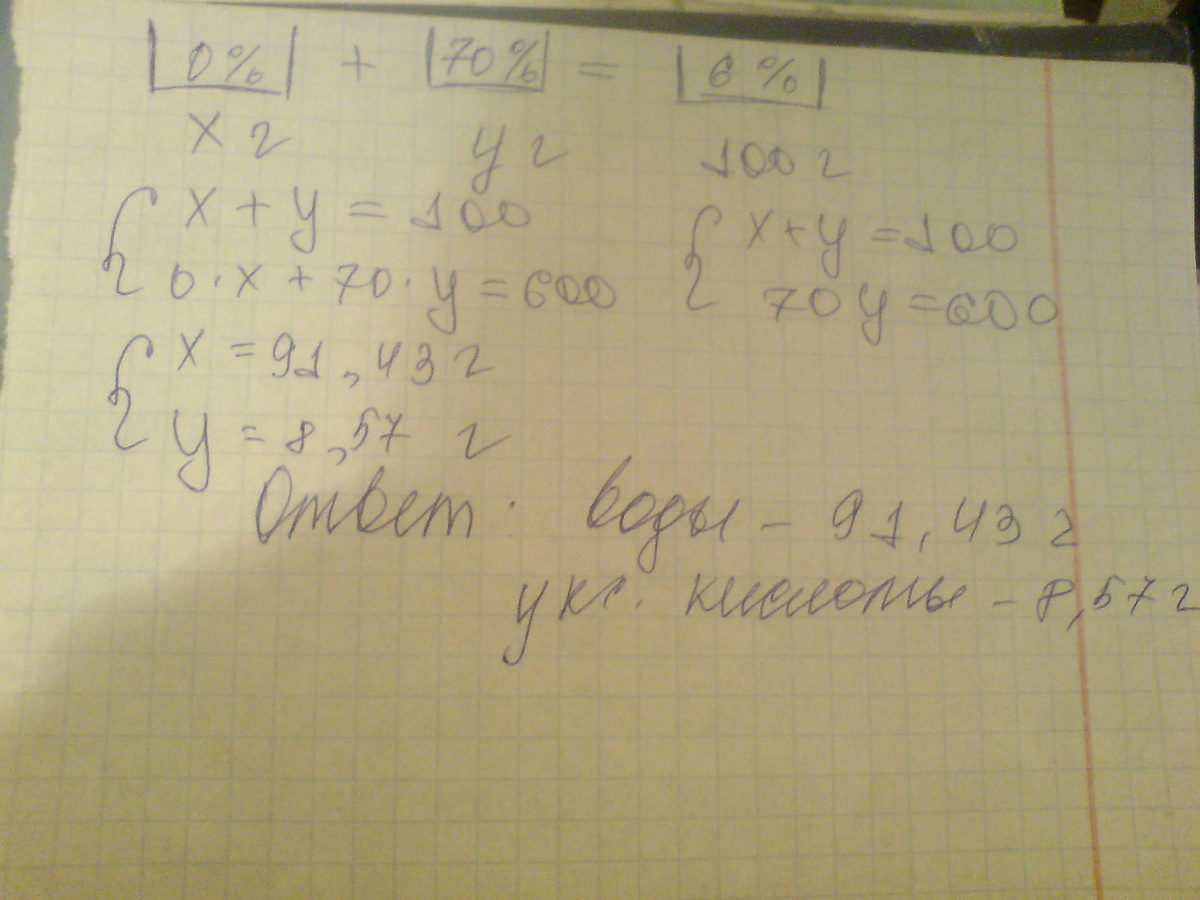 0% + 70% = 6%
х г у г 100 г
{ х + у = 100
0·х + 70·у = 600
{ х+у =100
70у =600
{ х = 91,43 г
у = 8,57 г
Ответ: воды – 91,43 г
укс. кислоты – 8,57 г